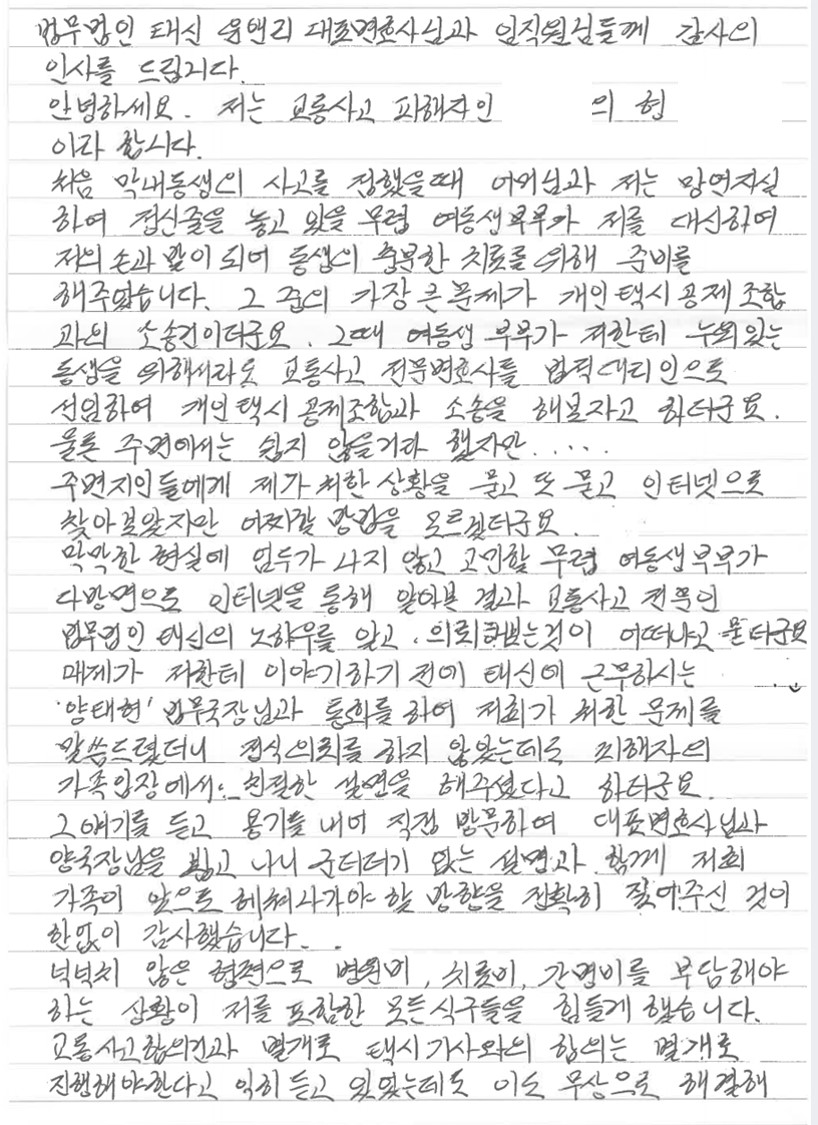 법무법인 태신 윤앤리 대표변호사님과 임직원님들께 감사의
인사를 드립니다.
안녕하세요. 저는 교통사고 피해자인 의 형
이라 합니다.
처음 막내동생의 사고를 접했을때 어머님과 저는 망연자실
하여 정신줄을 놓고 있을 무렵 여동생부부가 저를 대신하여
저의 손과 발이 되어 동생의 충분한 치료를 위해 준비를
해주었습니다. 그 중의 가장 큰 문제가 개인택시공제조합
과의 소송건이더군요. 그때 여동생 부부가 저한테 누워있는
동생을 위해서라도 교통사고 전문변호사를 법적대리인으로
선임하여 개인택시공제조합과 소송을 해보자고 하더군요.
물론 주변에서는 쉽지 않을거라 했지만.....
주변지인들에게 제가 처한 상황을 묻고 또 묻고 인터넷으로
찾아보았지만 어찌할 방법을 모르겠더군요.
막막한 현실에 엄두가 나지 않고 고민할 무렵 여동생부부가
다방면으로 인터넷을 통해 알아본 결과 교통사고 전문인
법무법인 태신의 노하우를 알고, 의뢰해보는것이 어떠냐고 묻더군요
매제가 저한테 이야기하기 전에 태신에 근무하시는
'양태현' 법무국장님과 통화를 하여 저희가 처한 문제를
말씀드렸더니 정식의뢰를 하지 않았는데도 피해자의
가족입장에서 친절한 설명을 해주셨다고 하더군요.
그얘기를 듣고 용기를 내어 직접 방문하여 대표변호사님과
양국장님을 뵙고 나니 군더더기 없는 설명과 함께 저희
가족이 앞으로 헤쳐나가야 할 방향을 정확히 짚어주신 것이
한없이 감사했습니다.
넉넉치 않은 형편으로 병원비, 치료비, 간병비를 부담해야
하는 상황이 저를 포함한 모든식구들을 힘들게 했습니다.
교통사고합의건과 별개로 택시기사와의 합의는 별개로
진행해야한다고 익히 듣고 있었는데도 이도 무상으로 해결해